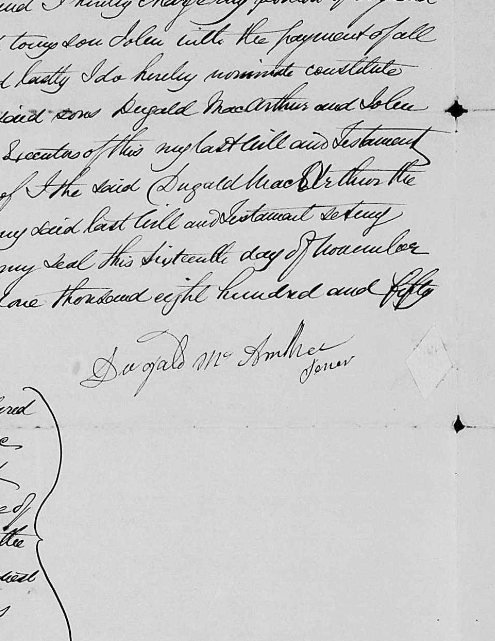 and I hereby charge my
to my son John with the payment of all
d lastly I do hereby nominate constitute
said sons Dugald MacArthur and John
Executors of this my last Will and Testament
of I the said Dugald MacArthur the
my said last Will and Testament set my
my seal this sixteenth day of November
one thousand eight hundred and fifty
Dugald Mc Arthur
Sener
ered
e of
the